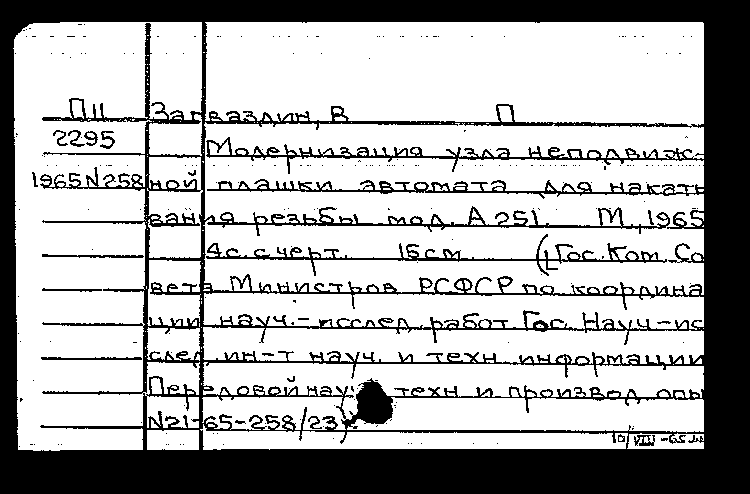 ПII Загваздин, В П
2295 Модернизация узла неподвиж-
1965 N258 ной плашки автомата для накаты
вания резьбы мод. А 251. М., 1965
4 с. с черт. 16 см (Гос. Ком. Со
вета Министров РСФСР по координа
ции науч.-исслед работ Гос. Науч-ис
след. ин-т науч. и техн информации
Передовой науч техн и производ. опы
N21-65-258/23)
10/VIII-65